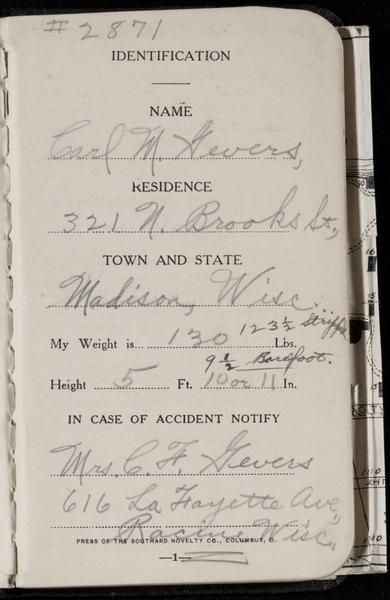 # 2871
IDENTIFICATION
NAME
Carl M. Gevers,
RESIDENCE
321 N. Brooks St.,
TOWN AND STATE
Madison, Wisc.
123½ Stripped
My Weight is 130 Lbs.
9½ Barefoot.
Height 5 Ft. 10 or 11 In.
IN CASE OF ACCIDENT NOTIFY
Mrs. C. F. Gevers
616 La Fayette Ave,
Racine, Wisc.
PRESS OF THE SOUTHARD NOVELTY CO., COLUMBUS, O.
—1—